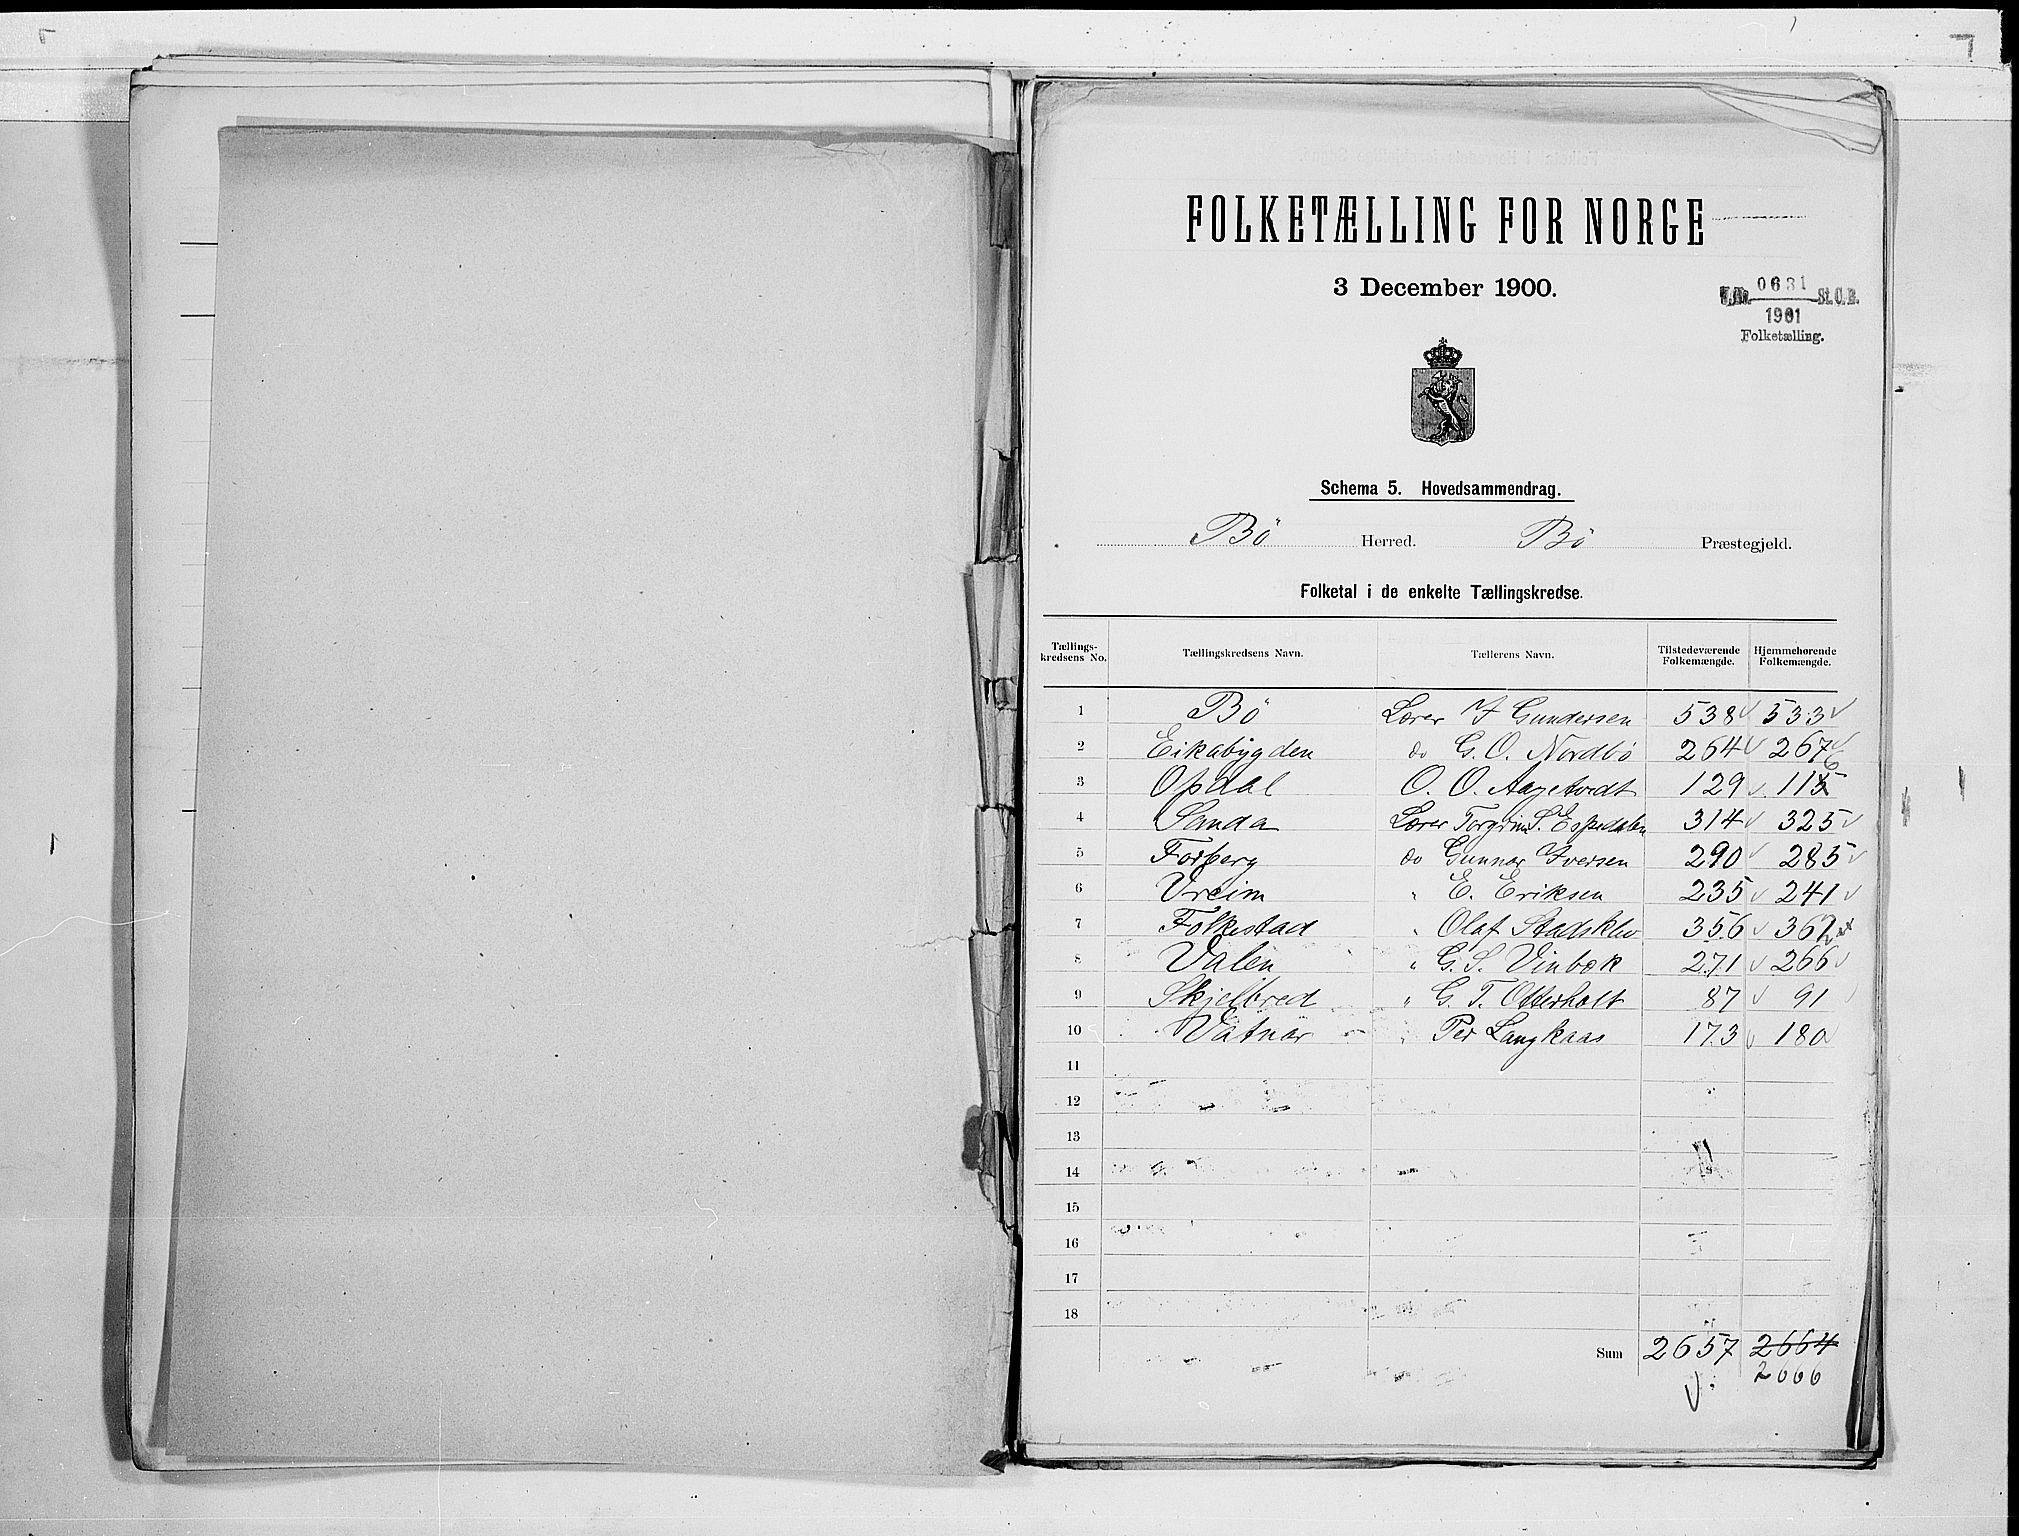 FOLKETÆLLING FOR NORGE
3 December 1900.
J.No. 0631 St.C.B.
1901
Folketælling.
Schema 5. Hovedsammendrag.
Bö Herred. Bö Præstegjeld.
Folketal i de enkelte Tællingskredse.
Tællings-kredsens No. Tællingskredsens Navn. Tællerens Navn. Tilstedeværende Folkemængde. Hjemmehørende Folkemængde.
1 Bö Lærer I Gundersen 538 533
2 Eikabygden do G. O. Nordbö 264 267
3 Opdal O. O. Aagetvedt 129 115 6
4 Sanda Lærer Torgrim S. Espedalen 314 325
5 Forberg do Gunnar Iversen 290 285
6 Vreim " E. Eriksen 235 241
7 Folkestad " Olaf Stadsklev 356 361 2
8 Valen " G. S. Vinbæk 271 266
9 Skjelbred " G. T. Otterholt 87 91
10 Vatnar " Per Langkaas 173 180
11
12
13
14
15
16
17
18
Sum 2657 2664
2666